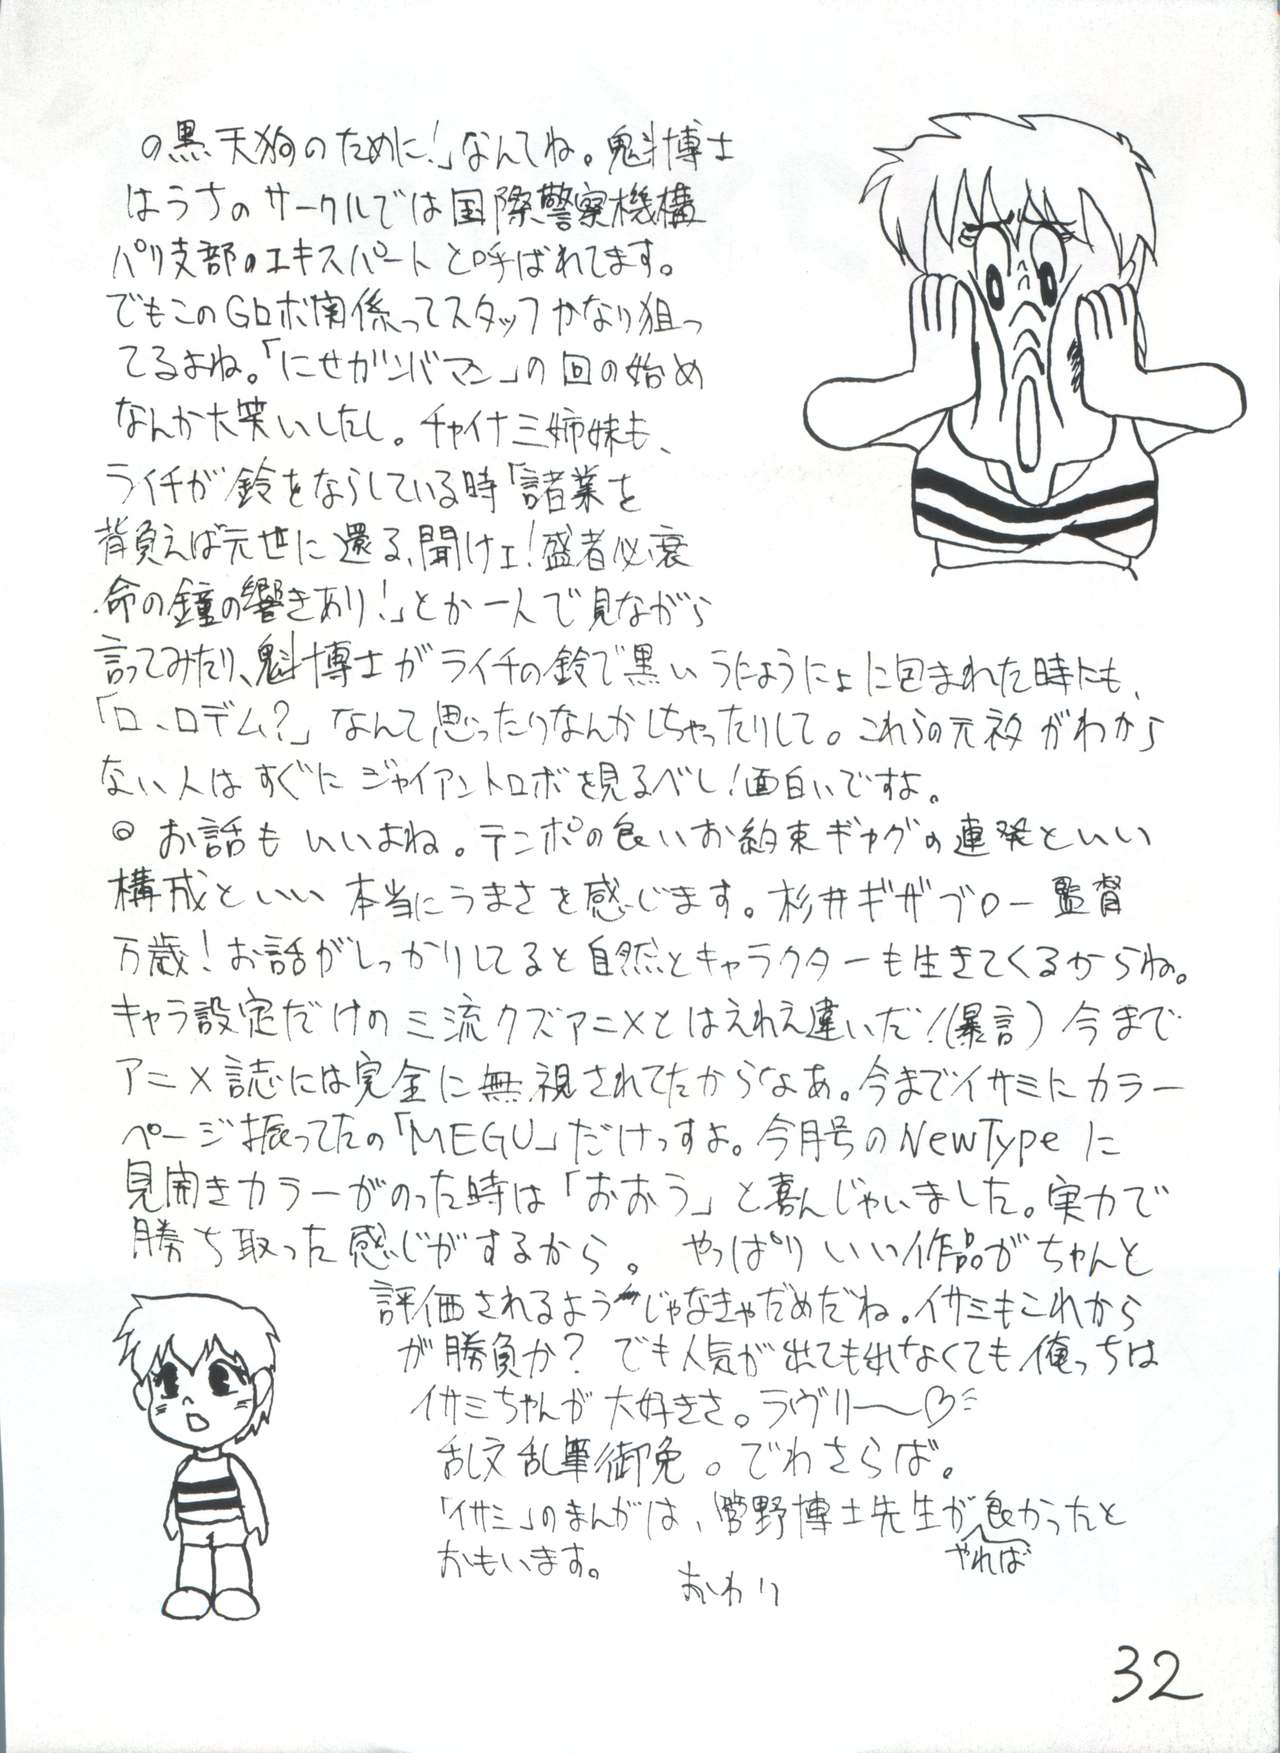 の黒天狗のために!」なんてね。魁博士
はうちのサークルでは国際警察機構
パリ支部のエキスパートと呼ばれてます。
でもこのGロボ関係ってスタッフかなり狙っ
てるよね。「にせガンバマン」の回の始め
なんか大笑いしたし。チャイナ三姉妹も、
ライチが鈴をならしている時「諸業を
背負えば元世に還る、聞けェ!盛者必衰
命の鐘の響きあり!」とか一人で見ながら
言ってみたり、魁博士がライチの鈴で黒いうにょうにょに包まれた時にも、
「ロ、ロデム?」なんて思ったりなんかしちゃったりして。これらの元ネタがわから
ない人はすぐにジャイアントロボを見るべし!面白いですよ。
◎お話もいいよね。テンポの良いお約束ギャグの連発といい
構成といい本当にうまさを感じます。杉井ギサブロー監督
万歳!お話がしっかりしてると自然とキャラクターも生きてくるからね。
キャラ設定だけの三流クズアニメとはえれえ違いだ!(暴言)今まで
アニメ誌には完全に無視されてたからなあ。今までイサミにカラー
ページ振ってたの「MEGU」だけっすよ。今月号のNewTypeに
見開きカラーがのった時は「おおう」と喜んじゃいました。実力で
勝ち取った感じがするから。やっぱりいい作品がちゃんと
評価されるようじゃなきゃだめだね。イサミもこれから
が勝負か?でも人気が出ても出なくても俺っちは
イサミちゃんが大好きさ。ラヴリ〜♡
乱文乱筆御免。でわさらば。
「イサミ」のまんがは、菅野博士先生が良かったと
やれば
おもいます。
おわり
32